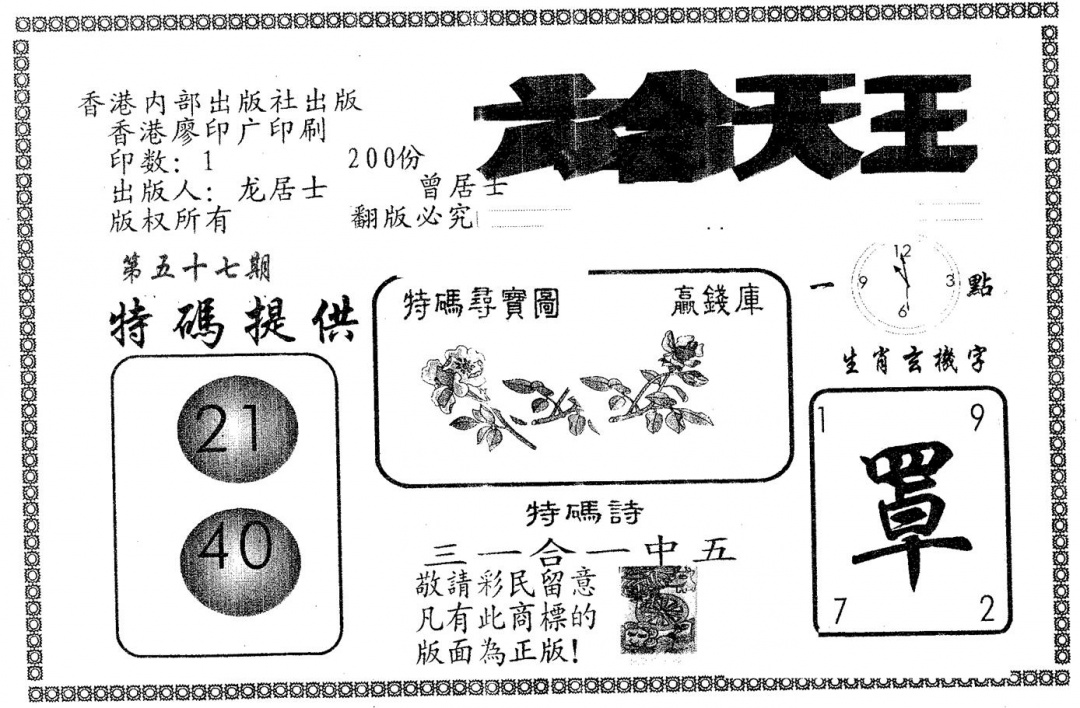 香港内部出版社出版
香港廖印广印刷
印数: 1 200份
出版人: 龙居士 曾居士
版权所有 翻版必究
六合天王
第五十七期
特碼提供
21
40
特碼尋寶圖 贏錢庫
特碼詩
三一合一中五
敬請彩民留意
凡有此商標的
版面為正版!
一 點
12
9 3
6
生肖玄機字
1 9
罩
7 2